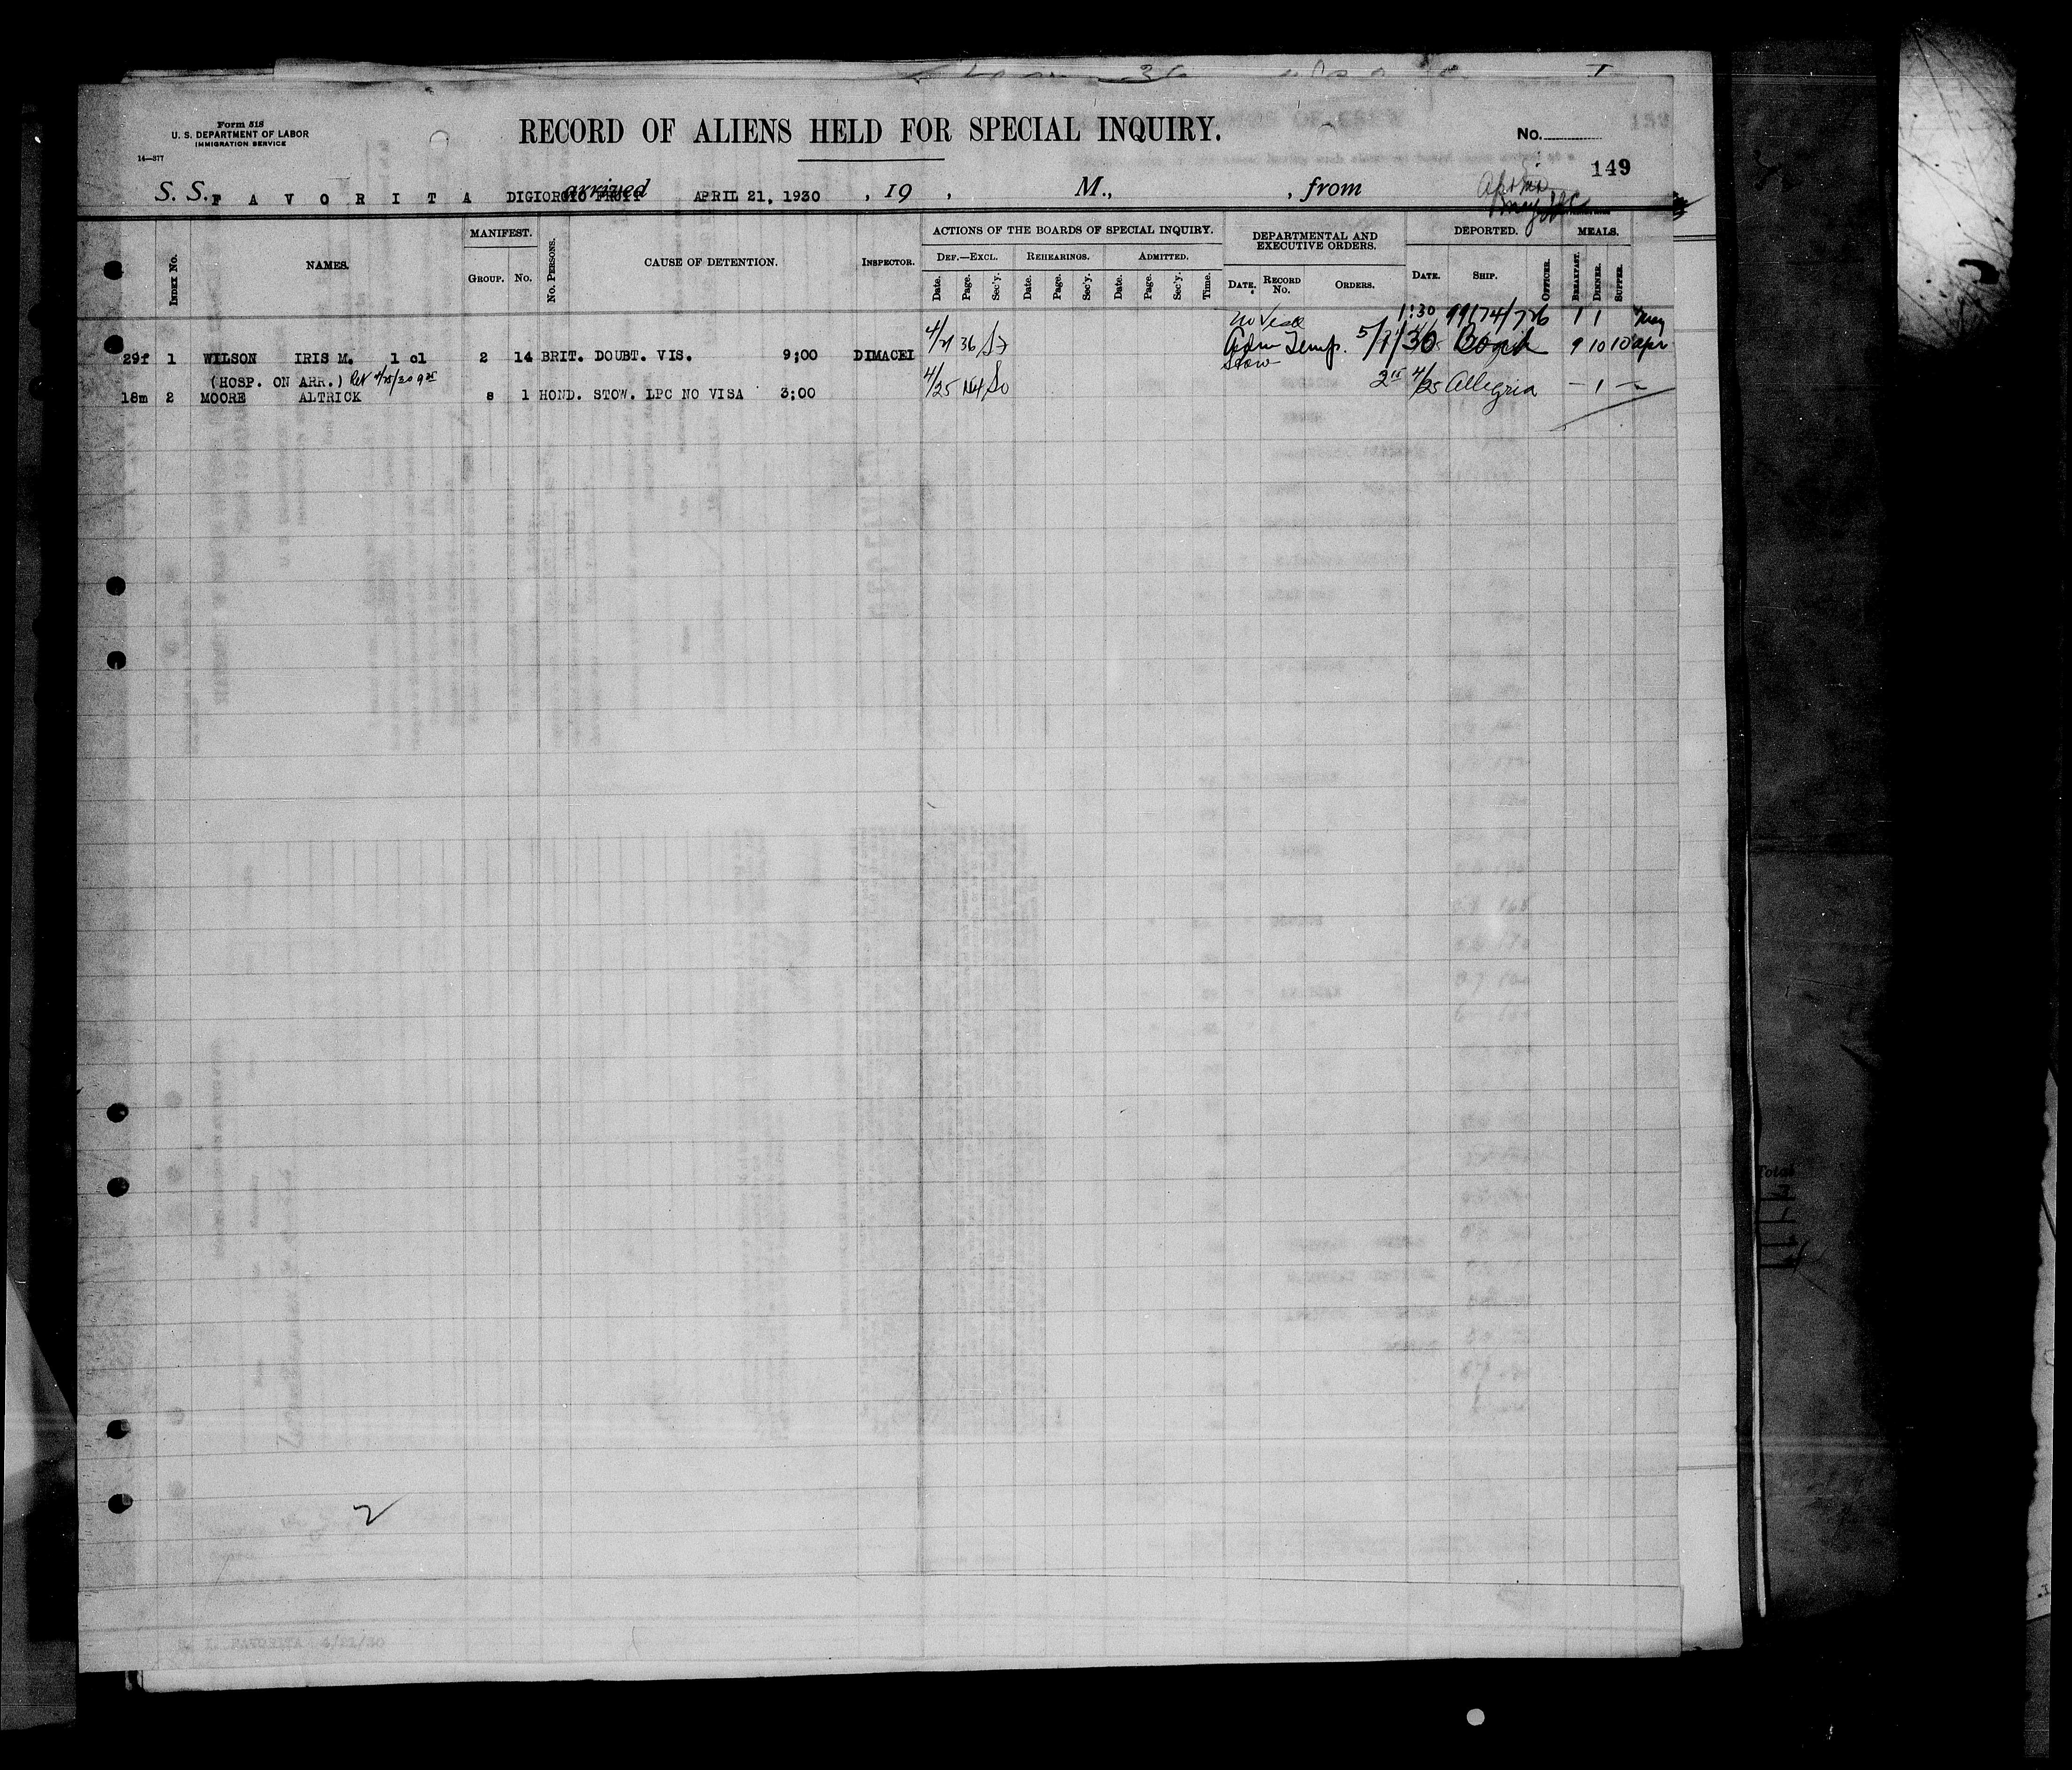 Form 518
U. S. DEPARTMENT OF LABOR
IMMIGRATION SERVICE
14—377
RECORD OF ALIENS HELD FOR SPECIAL INQUIRY.
No.
149
S. S. F A V O R I T A DIGIORGIO FRUIT arrived APRIL 21, 1930 , 19 , M., , from
MANIFEST.
ACTIONS OF THE BOARDS OF SPECIAL INQUIRY.
DEPARTMENTAL AND EXECUTIVE ORDERS.
DEPORTED.
MEALS.
Index No. NAMES. Group. No. No. Persons. CAUSE OF DETENTION. Inspector.
Def.—Excl. Rehearings. Admitted.
Date. Page. Sec'y. Date. Page. Sec'y. Date. Page. Sec'y. Time. Date. Record No. Orders. Date. Ship. Officer. Breakfast. Dinner. Supper.
no Visa 1:30 99174/726 1 1 May
29f 1 WILSON IRIS M. 1 cl 2 14 BRIT. DOUBT. VIS. 9;00 DIMACEI 36 Adm Temp. 5/1/30 9 10 10 apr
(HOSP. ON ARR.) 4/25/30
Stow
18m 2 MOORE ALTRICK s 1 HOND. STOW. LPC NO VISA 3;00 4/25 So 4/25 Allegria — 1 —
2